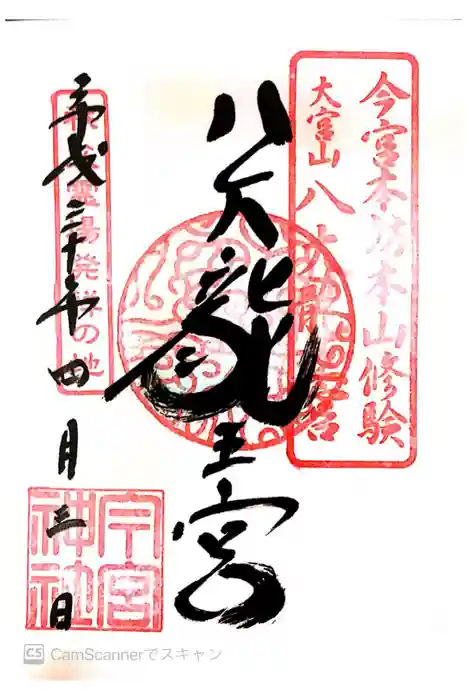 今宮本坊本山修験
大宮山八大龍王宮
八大龍王宮
霊場発祥の地
平成三十年四月三日
今宮神社
CS CamScannerでスキャン